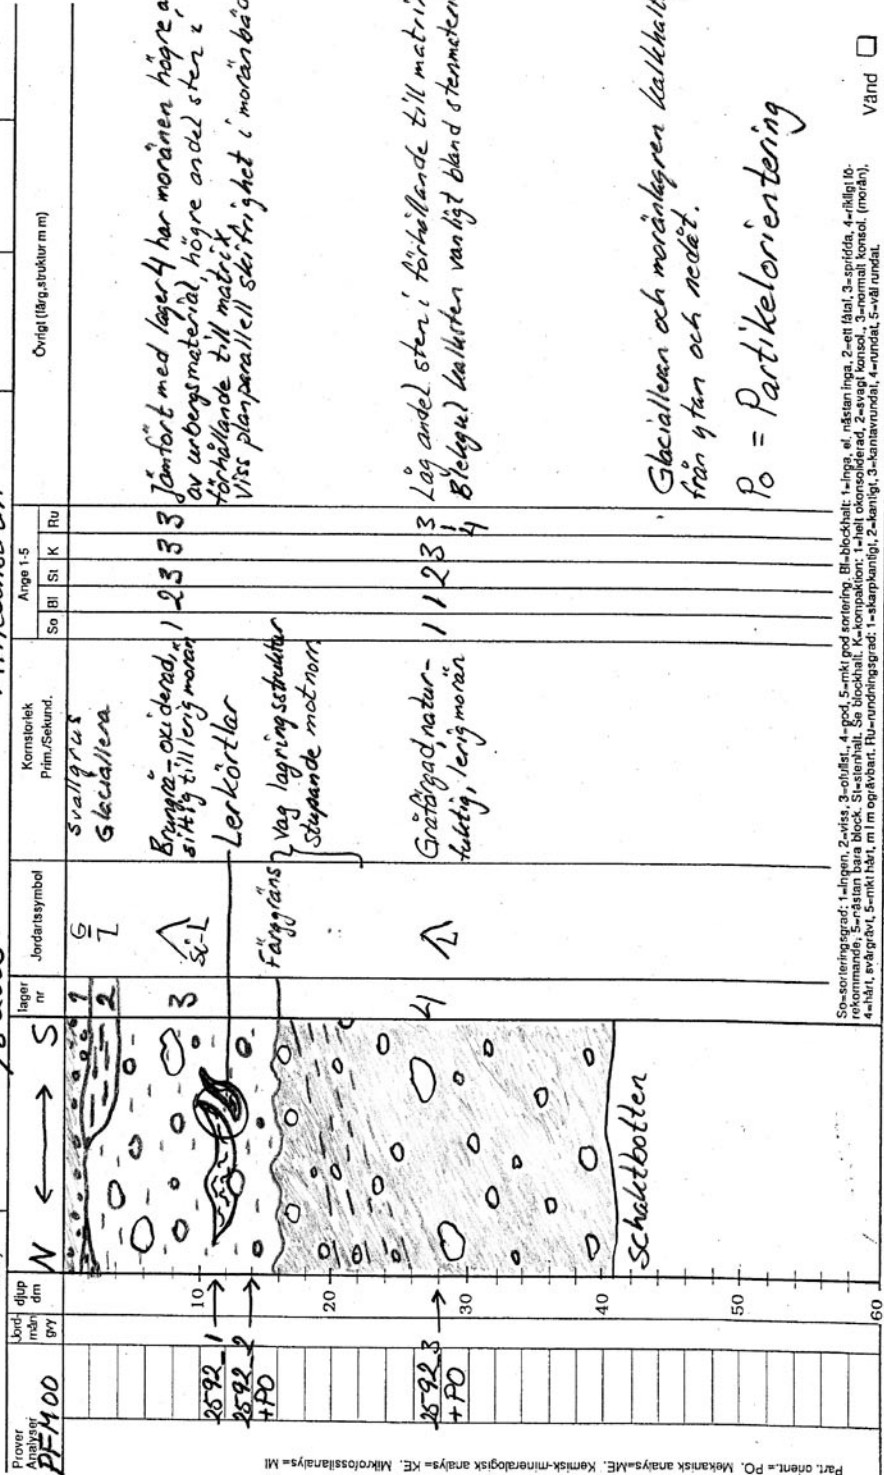 Prover
Analyser
PFM00
Jord-
mån
gvy
djup
dm
N
S
lager
nr
Jordartssymbol
Kornstorlek
Prim./Sekund.
Ange 1-5
So Bl St K Ru
Övrigt (färg,struktur m m)
1
G
svallgrus
2
L
Glaciallera
3
Si-L
Brungrå-oxiderad,
siltig till lerig morän
1 2 3 3 3
Jämfört med lager 4 har moränen högre a
av urbergsmaterial, högre andel sten i
förhållande till matrix.
Viss planparallell skiffrighet i moränbäd
10
2592_1
Lerkörtlar
2592_2
+PO
Färggräns
Vag lagringsstruktur
stupande mot norr
20
4
L
Gråfärgad, natur-
fuktig, lerig morän
1 1 2 3 3
4
Låg andel sten i förhållande till matri
Blekgul kalksten vanligt bland stenmater
2592_3
+PO
30
40
Schaktbotten
Glacialleran och moränlagren kalkhalt
från ytan och nedåt.
50
Po = Partikelorientering
60
Part. orient.= PO. Mekanisk analys=ME. Kemisk-mineralogisk analys= KE. Mikrofossilanalys= MI
So=sorteringsgrad: 1=ingen, 2=viss, 3=ofullst., 4=god, 5=mkt god sortering. Bl=blockhalt: 1=inga, el. nästan inga, 2=ett fåtal, 3=spridda, 4=rikligt fö-
rekommande, 5=nästan bara block. St=stenhalt. Se blockhalt. K=kompaktion: 1=helt okonsoliderad, 2=svagt konsol., 3=normalt konsol. (morän),
4=hårt, svårgrävt, 5=mkt hårt, m l m ogrävbart. Ru=rundningsgrad: 1=skarpkantigt, 2=kantigt, 3=kantavrundat, 4=rundat, 5=väl rundat.
Vänd